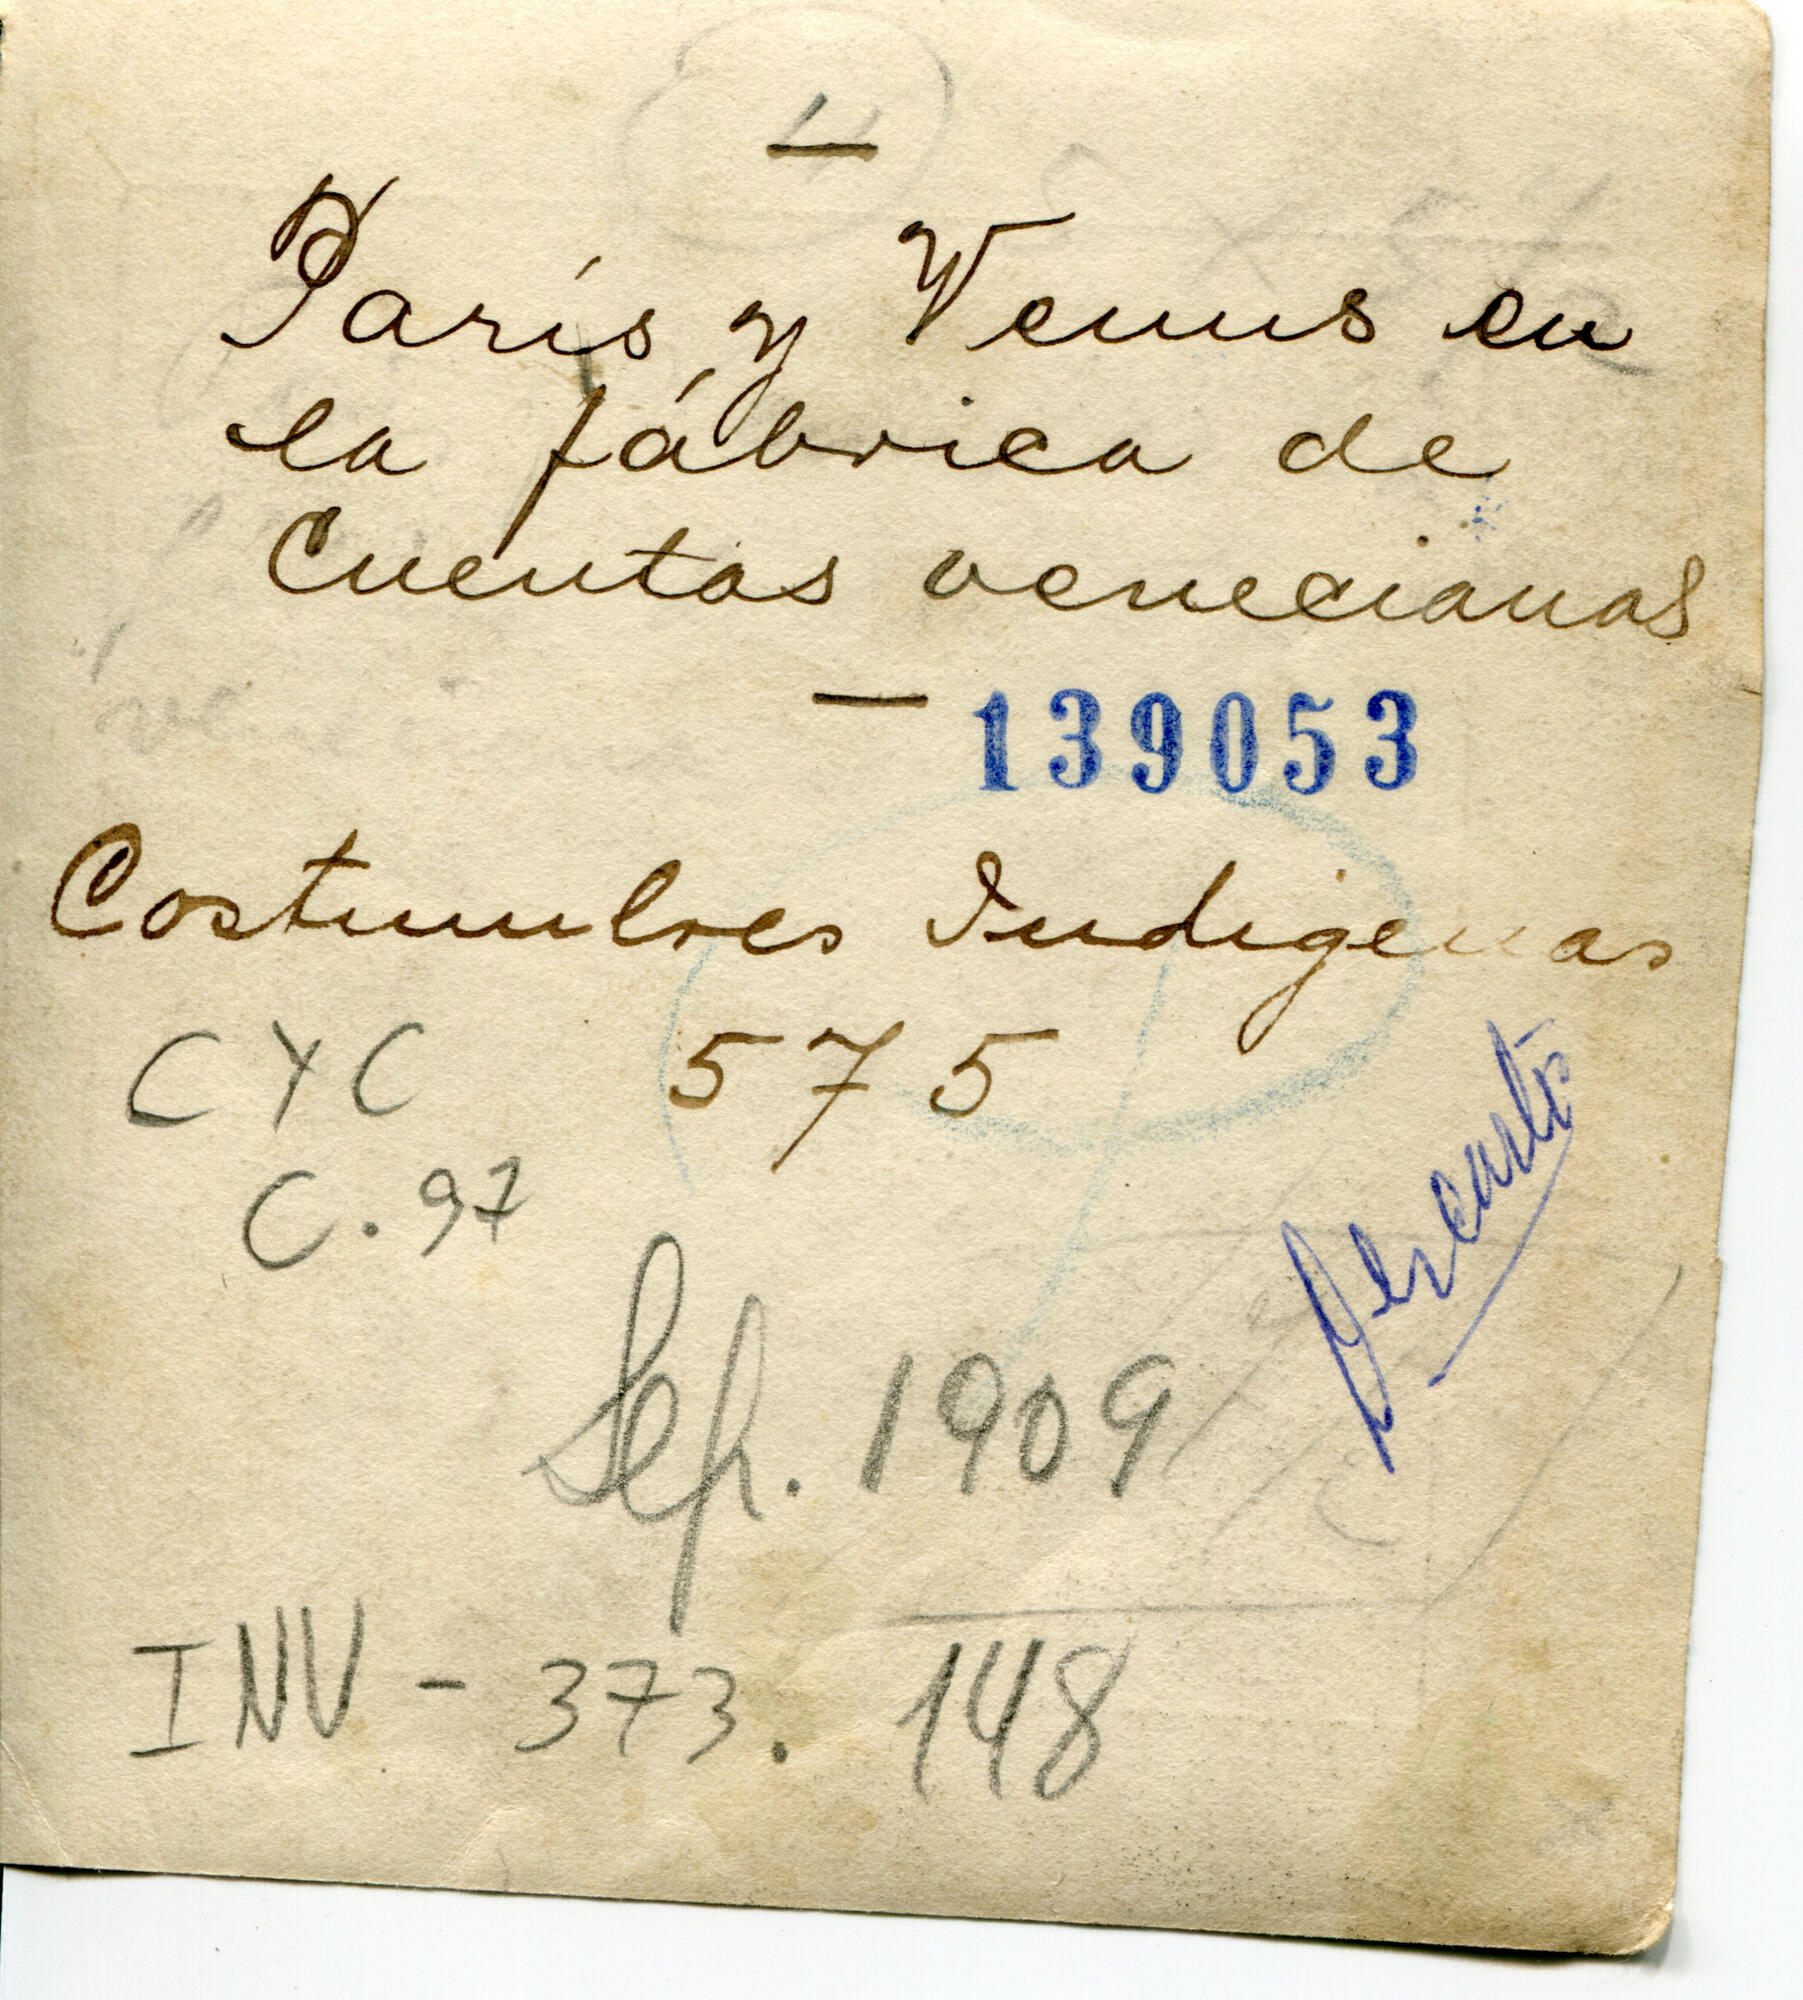 París y Venus en
la fábrica de
Cuentas venecianas
— 139053
Costumbres Indigenas
CYC 575
C. 97
Descarto
Sep. 1909
INV - 373. 148